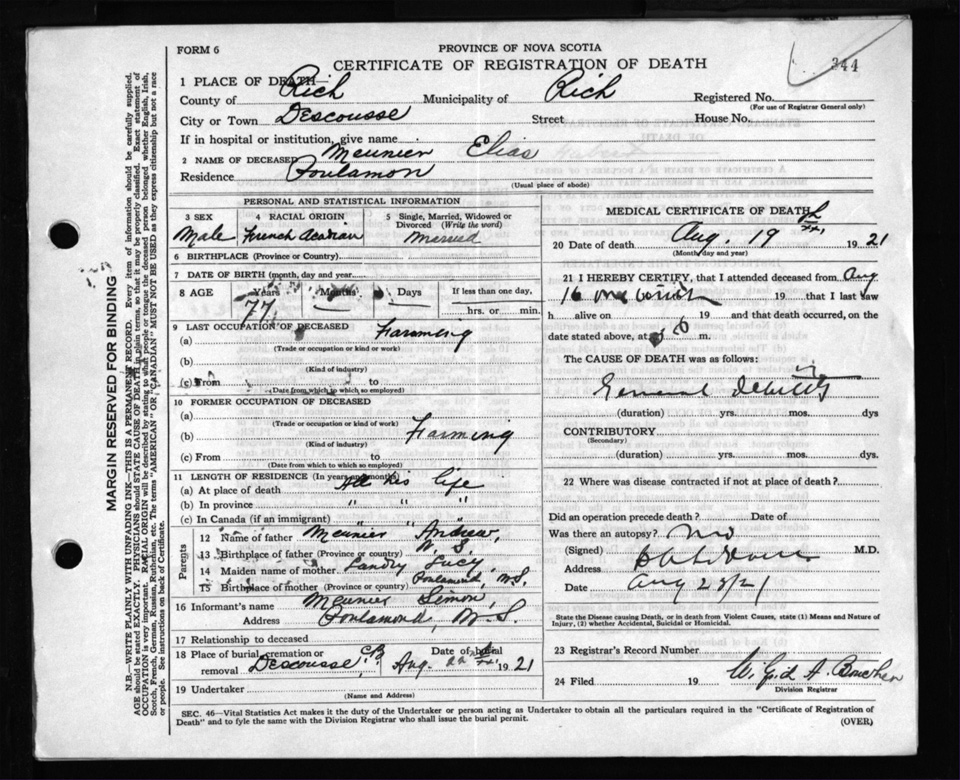 FORM 6
PROVINCE OF NOVA SCOTIA
CERTIFICATE OF REGISTRATION OF DEATH
344
1 PLACE OF DEATH—
County of Rich Municipality of Rich Registered No.
(For use of Registrar General only)
City or Town Descousse Street House No.
If in hospital or institution, give name
2 NAME OF DECEASED Meunier Elias
Residence Poulamon
(Usual place of abode)
PERSONAL AND STATISTICAL INFORMATION
3 SEX 4 RACIAL ORIGIN 5 Single, Married, Widowed or Divorced (Write the word)
Male French Acadian Married
6 BIRTHPLACE (Province or County)
7 DATE OF BIRTH (month, day and year)
8 AGE Years Months Days If less than one day,
77 hrs. or min.
9 LAST OCCUPATION OF DECEASED
(a) Farming
(Trade or occupation or kind or work)
(b)
(Kind of industry)
(c) From to
(Date from which to which so employed)
10 FORMER OCCUPATION OF DECEASED
(a)
(Trade or occupation or kind of work)
(b) Farming
(Kind of industry)
(c) From to
(Date from which to which so employed)
11 LENGTH OF RESIDENCE (In years and months)
(a) At place of death All his life
(b) In province " " "
(c) In Canada (if an immigrant) " " "
Parents
12 Name of father Meunier Andrew,
13 Birthplace of father (Province or country) N. S.
14 Maiden name of mother Landry Lucy
15 Birthplace of mother (Province or country) Poulamond, N.S.
16 Informant's name Meunier Simon,
Address Poulamond, N.S.
17 Relationship to deceased
18 Place of burial, cremation or removal Descousse C.B. Date of burial Aug. 22 1921
19 Undertaker
(Name and Address)
MEDICAL CERTIFICATE OF DEATH
20 Date of death Aug. 19 1921
(Month, day and year)
21 I HEREBY CERTIFY, that I attended deceased from Aug
16 19 that I last saw
h alive on 19 and that death occurred, on
date stated above, at m.
The CAUSE OF DEATH was as follows:
General Debility
(duration) yrs. mos. dys
CONTRIBUTORY
(Secondary)
(duration) yrs. mos. dys.
22 Where was disease contracted if not at place of death?
Did an operation precede death? Date of
Was there an autopsy? No
(Signed) M.D.
Address
Date Aug 23/21
State the Disease causing Death, or in death from Violent Causes, state (1) Means and Nature of Injury, (2) whether Accidental, Suicidal or Homicidal.
23 Registrar's Record Number
24 Filed 19
Division Registrar
SEC. 46—Vital Statistics Act makes it the duty of the Undertaker or person acting as Undertaker to obtain all the particulars required in the "Certificate of Registration of
Death" and to fyle the same with the Division Registrar who shall issue the burial permit. (OVER)
MARGIN RESERVED FOR BINDING
N.B.—WRITE PLAINLY WITH UNFADING INK—THIS IS A PERMANENT RECORD. Every item of information should be carefully supplied.
AGE should be stated EXACTLY. PHYSICIANS should STATE CAUSE OF DEATH in plain terms, so that it may be properly classified. Exact statement of
OCCUPATION is very important. RACIAL ORIGIN will be described by stating to what people or tongue the deceased person belonged whether English, Irish,
Scotch, French, German, Russian, Ruthenian, etc. The terms "AMERICAN" OR "CANADIAN" MUST NOT BE USED as they express citizenship but not a race
or people. See instructions on back of Certificate.